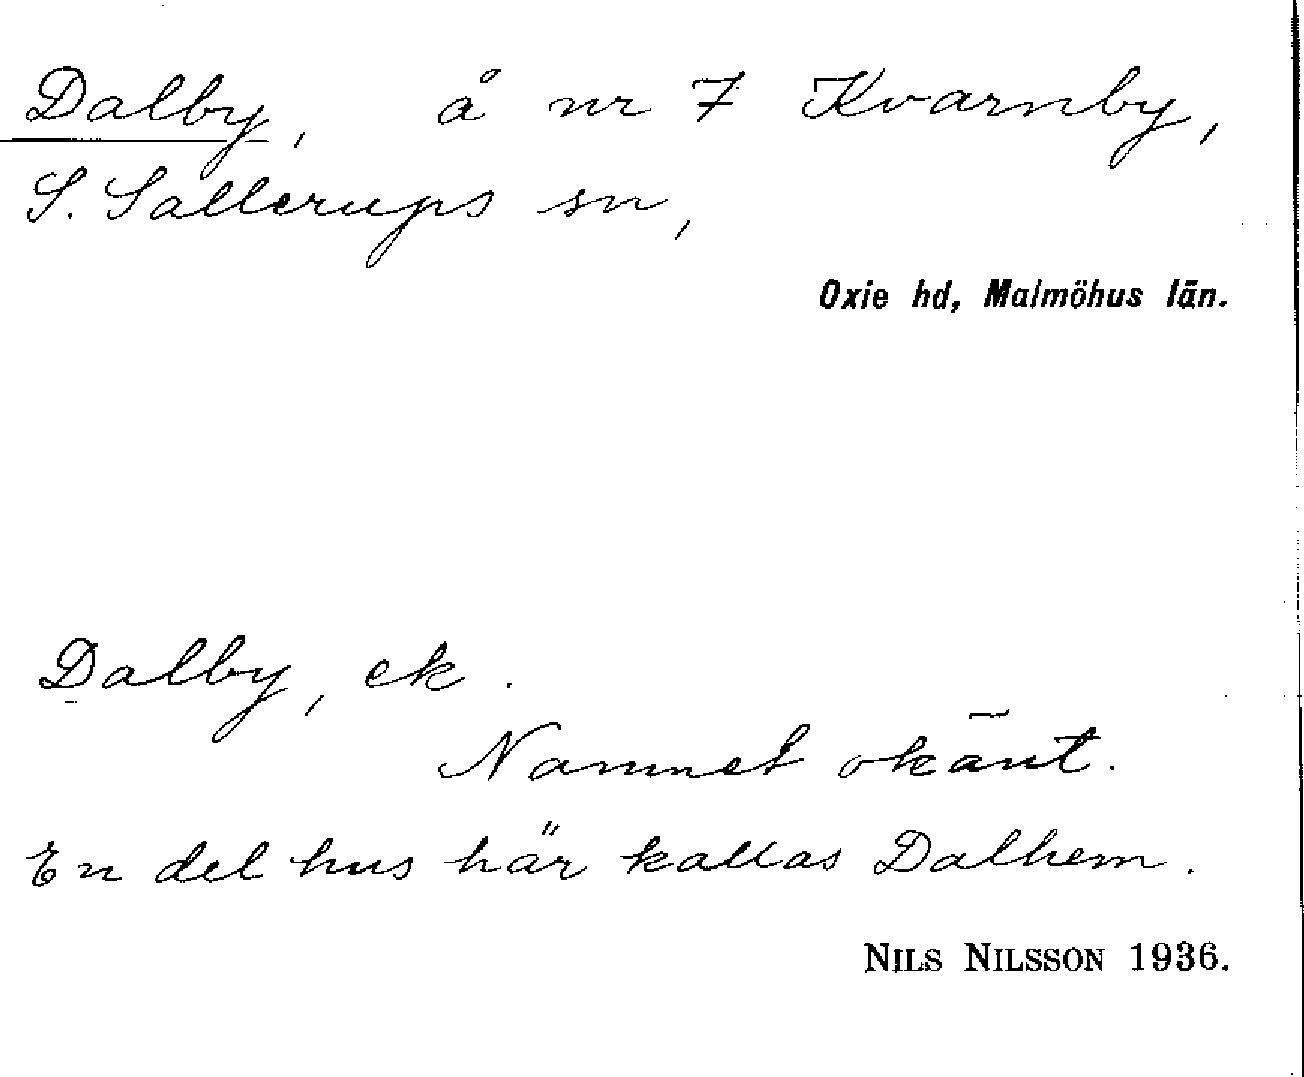 Dalby, å nr 7 Kvarnby,
S. Sallerups sn,
Oxie hd, Malmöhus län.
Dalby, ek.
Namnet okänt.
En del hus här kallas Dalhem.
NILS NILSSON 1936.